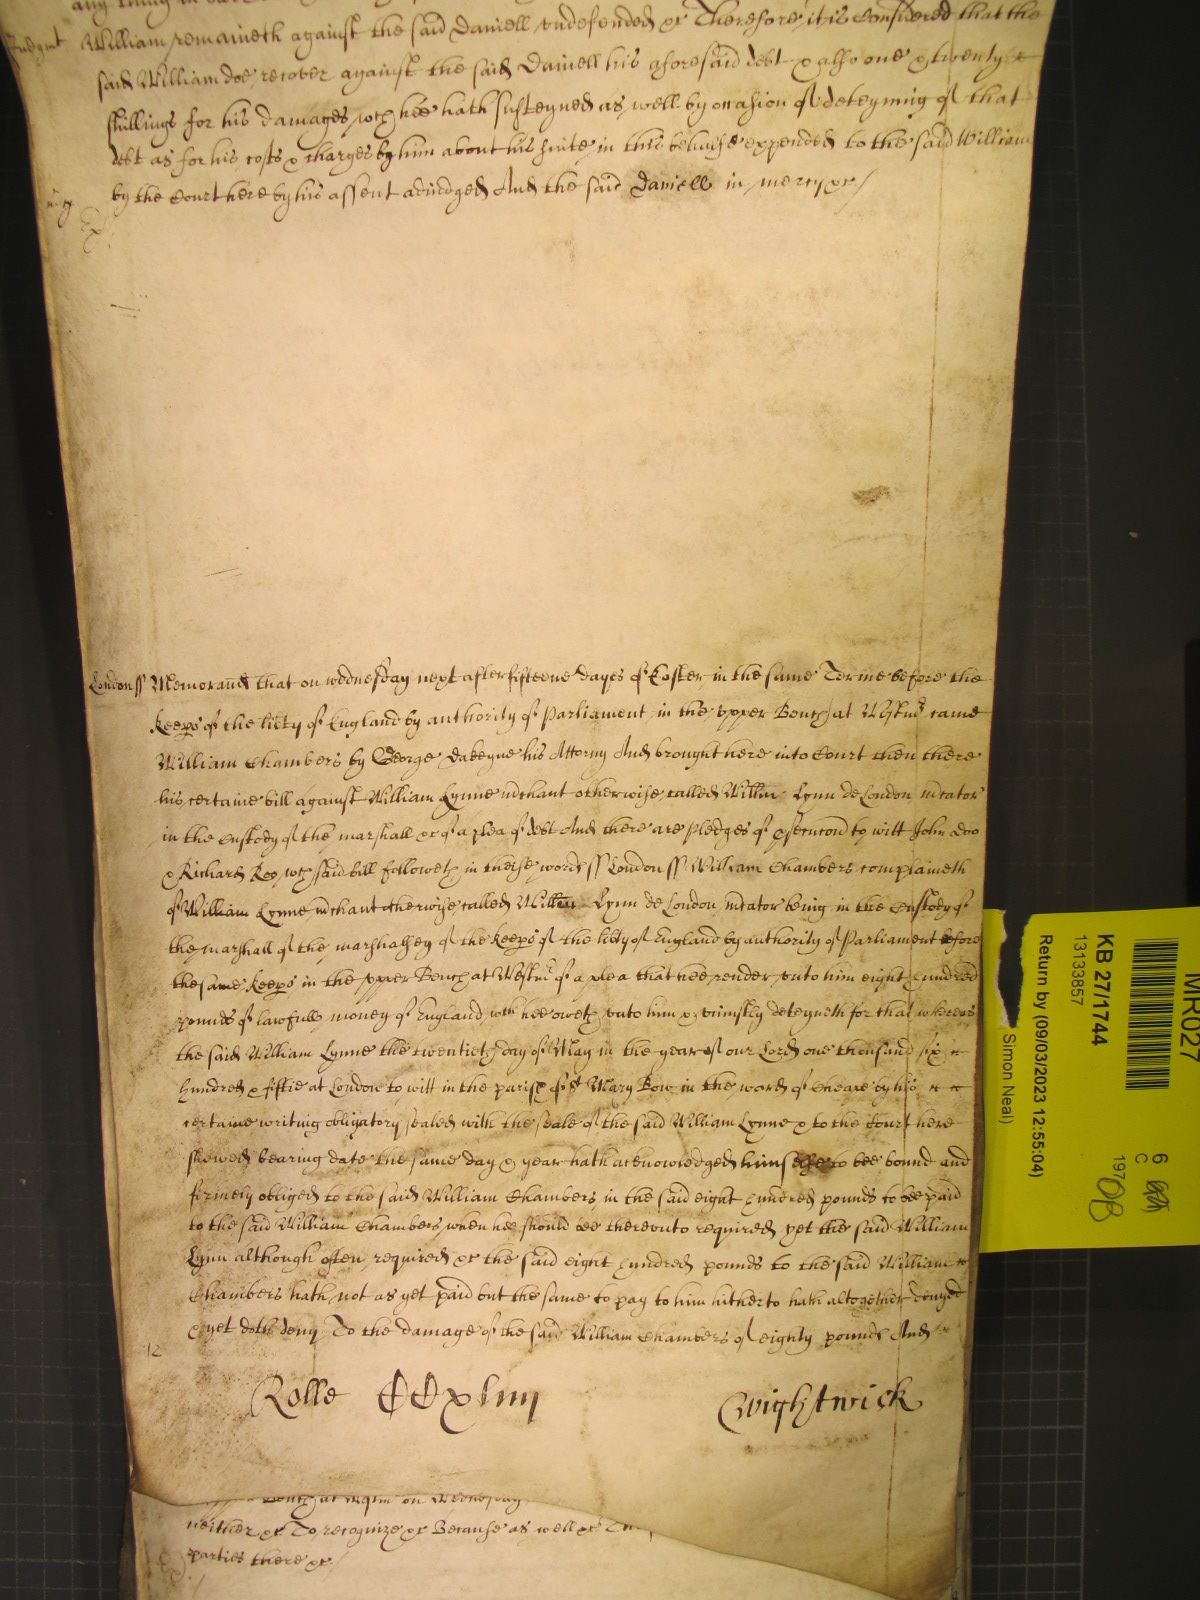 any thing in
Judgmt William remaineth against the said Daniell undefended &c Therefore it is Considered that the
said William doe recover against the said Daniell his aforesaid debt & also one & twenty
shillings for his damages wch hee hath susteyned as well by occasion of deteyning of that
debt as for his costs & charges by him about his suite in this behalfe expended to the said William
by the Court here by his assent adiudged And the said Daniell in mercy &c /
mcy
London ss Memorand that on wednesday next after fifteene dayes of Easter in the same Terme before the
keeps of the libty of England by authority of Parliament in the upper Bench at Westm came
William Chambers by George Dakeyne his Attorny And brought here into Court then there
his certaine bill against William Lynne mchant otherwise called Willm Lynn de London mcator
in the Custody of the marshall &c of a plea of debt And there are pledges of psecucon to witt John Doo
& Richard Roo wch said bill followeth in theise words ss London ss William Chambers complaineth
of William Lynne mchant otherwise called Willm Lynn de London mcator being in the Custody of
the marshall of the marshalsey of the keeps of the libty of England by authority of Parliament before
the same keeps in the upper Bench at Westm of a plea that hee render unto him eight hundred
pounds of lawfull money of England wch hee oweth unto him & uniustly deteyneth for that whereas
the said William Lynne the twentieth day of May in the yeare of our Lord one thousand six
hundred & fiftie at London to witt in the parish of St Mary Bow in the ward of Cheape by his
certaine writing obligatory sealed with the seale of the said William Lynne & to the Court here
shewed bearing date the same day & year hath acknowledged himselfe to bee bound and
firmely obliged to the said William Chambers in the said eight hundred pounds to bee paid
to the said William Chambers when hee should bee thereunto required yet the said William
Lynn although often required &c the said eight hundred pounds to the said William
Chambers hath not as yet paid but the same to pay to him hitherto hath altogether denyed
& yet doth deny To the damage of the said William Chambers of eighty pounds And
12
Rolle CCxliiij
Wightwick
Bench at Westm on Wednesday
neither &c To recognize &c Because as well &c
parties there &c /
MR027
KB 27/1744
13133857
Return by (09/03/2023 12:55:04)
Simon Neal)
6
C
197